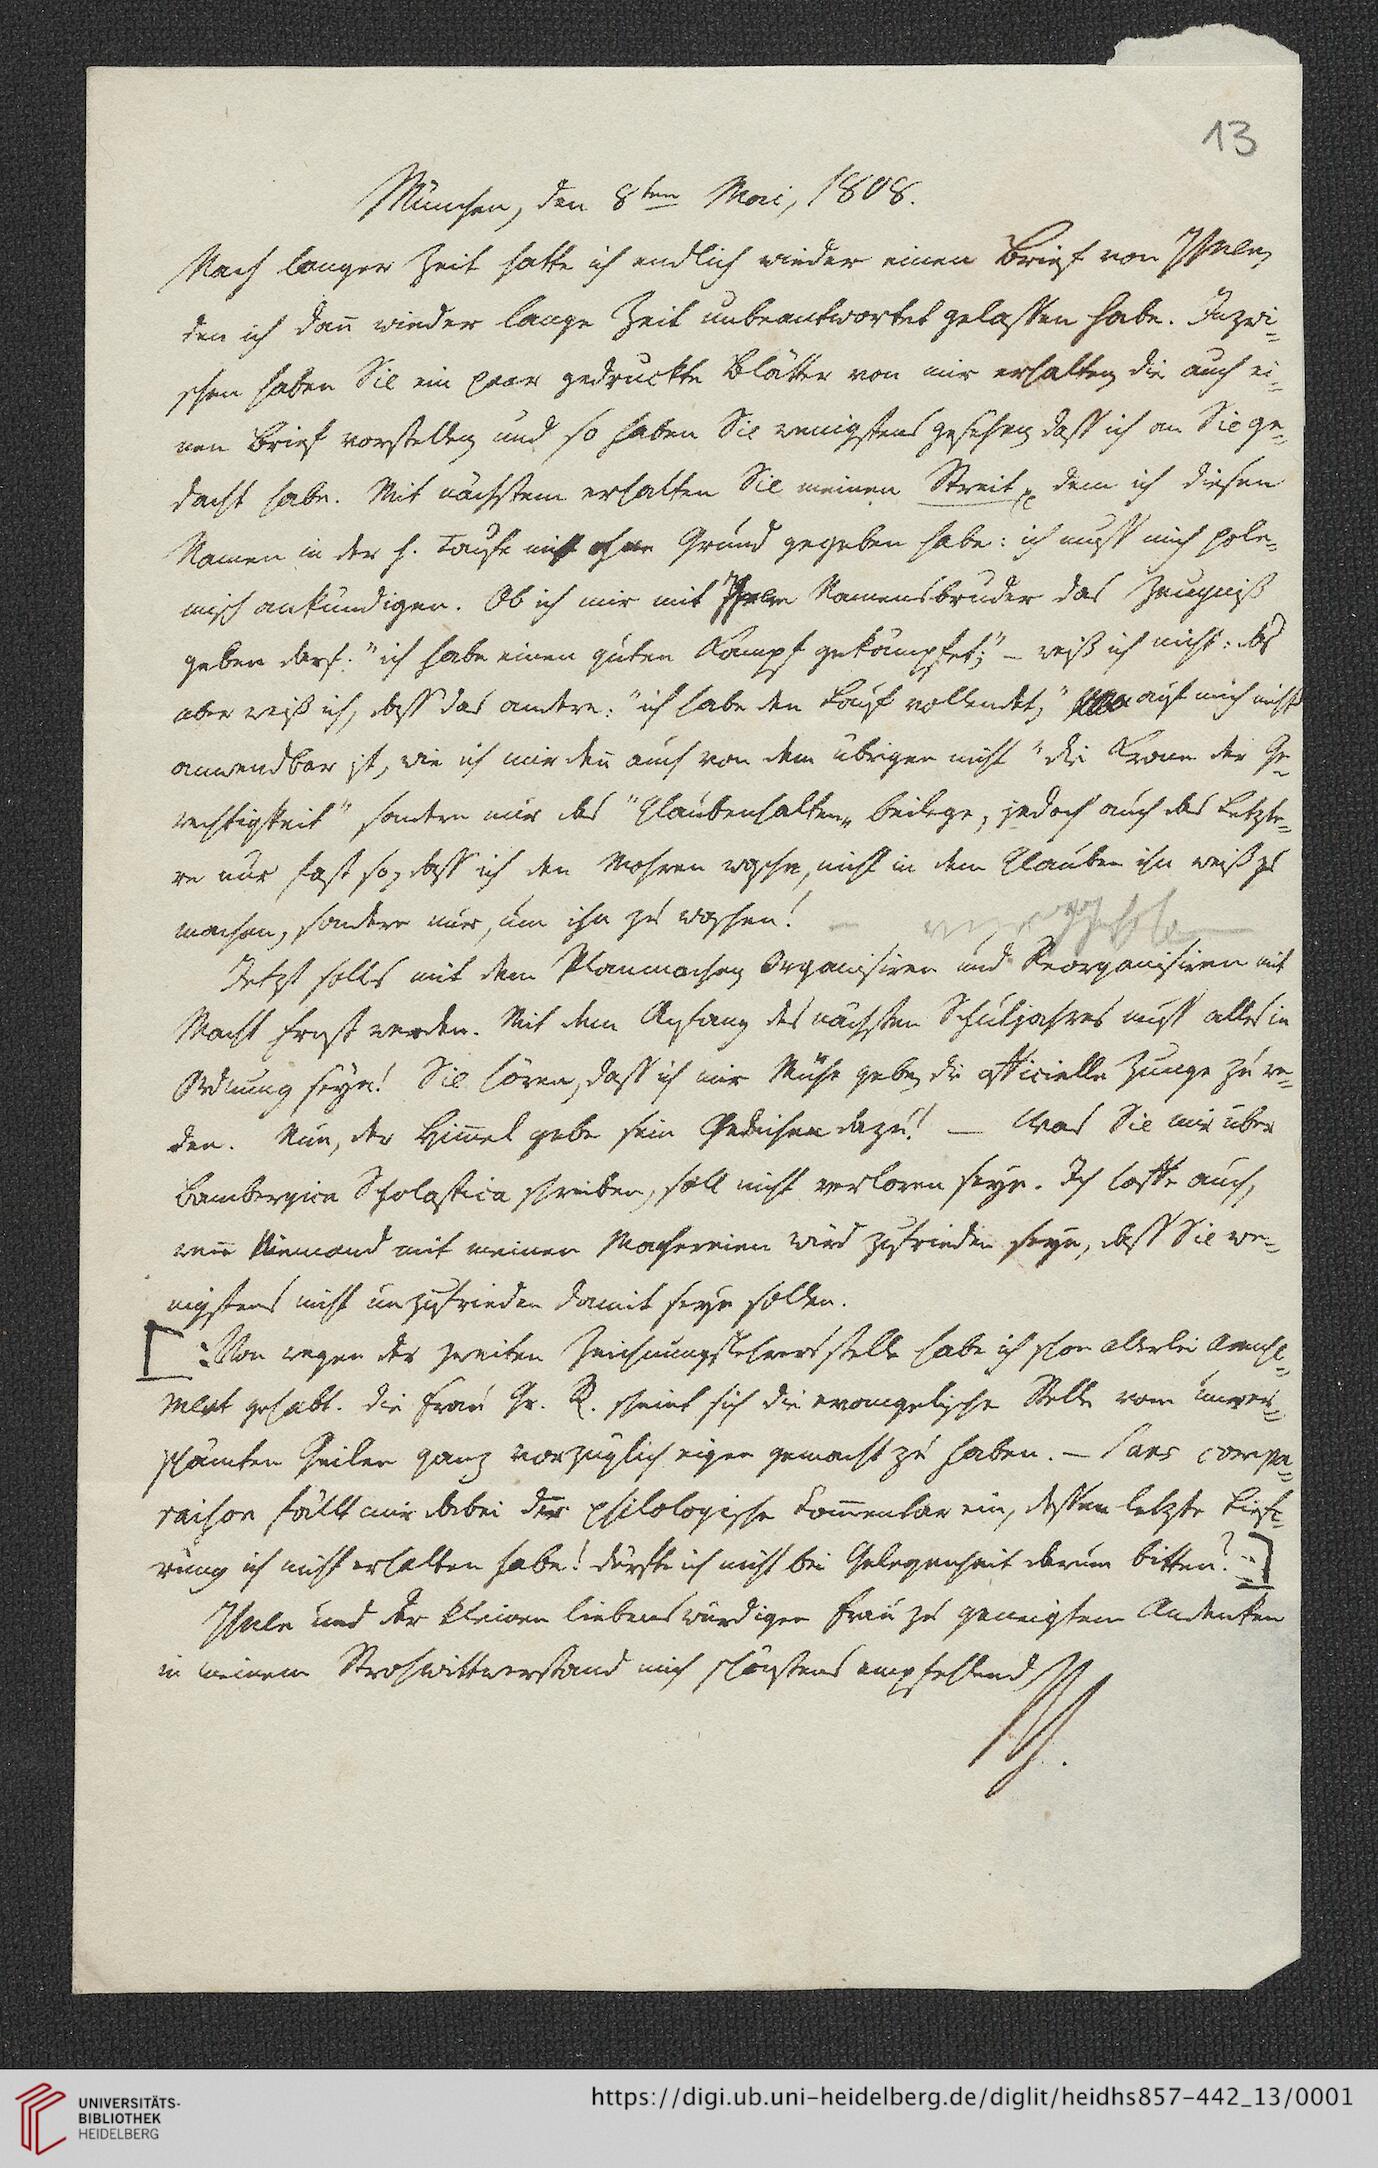 13
München, den 8ten Mai, 1808.
Nach langer Zeit hatte ich endlich wieder einen Brief von Ihnen,
den ich dañ wieder lange Zeit unbeantwortet gelassen habe. Inzwi-
schen haben Sie ein paar gedruckte Blätter von mir erhalten, die auch ei-
nen Brief vorstellen, und so haben Sie wenigstens gesehen, dass ich an Sie ge-
dacht habe. Mit nächstem erhalten Sie meinen Streit, dem ich diesen
Namen in der h. Taufe nicht ohne Grund gegeben habe: ich muss mich pole-
misch ankündigen. Ob ich mir mit Ihrem Namensbruder das Zeugniß
geben darf: "ich habe einen guten Kampf gekämpfet;" – weiß ich nicht: das
aber weiß ich, dass das andere: "ich habe den Lauf vollendet," auf mich nicht
anwendbar ist, wie ich mir deñ auch von dem übrigen nicht "die Krone der Ge-
rechtigkeit" sondern nur das "Glaubenhalten" beilege, jedoch auch das Letzte-
re nur fast so, dass ich den Mohren wasche, nicht in dem Glauben ihn weiß zu
machen, sondern nur, um ihn zu waschen! –
Jetzt solls mit dem Planmachen, Organisiren und Reorganisiren mit
Macht Ernst werden. Mit dem Anfang des nächsten Schuljahres muss alles in
Ordnung seyn! Sie hören, dass ich mir Mühe gebe, die officielle Zunge zu re-
den. Nun, der Him̃el gebe sein Gedeihen dazu! — Was Sie mir über
Bambergica Scholastica schreiben, soll nicht verloren seyn. Ich hoffe auch,
weñ Niemand mit meinen Machereien wird zufrieden seyn, dass Sie we-
nigstens nicht unzufrieden damit seyn sollen.
[: Von wegen der zweiten Zeichnungslehrersstelle habe ich schon allerlei
gehabt. Die Frau Gr. R. scheint sich die evangelische Stelle vom unver-
schämten Geilen ganz vorzüglich eigen gemacht zu haben. – Sans compa-
raison fällt mir dabei der philologische Com̃entar ein, dessen letzte Liefe-
rung ich nicht erhalten habe! Dürfte ich nicht bei Gelegenheit darum bitten? :]
Ihnen und der kleinen liebenswürdigen Frau zu geneigtem Andenken
in meinem Strohwittwerstand mich schönstens empfehlend
UNIVERSITÄTS-
BIBLIOTHEK
HEIDELBERG
https://digi.ub.uni-heidelberg.de/diglit/heidhs857-442_13/0001